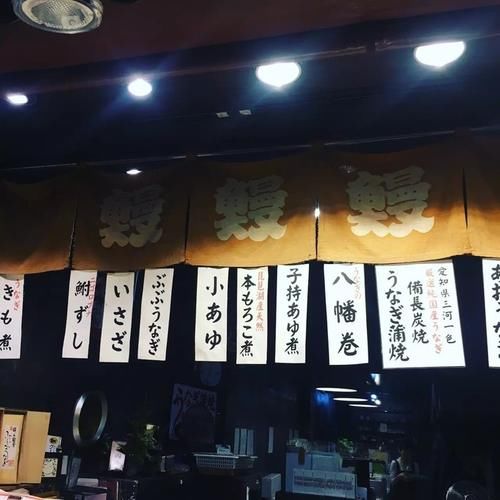 鰻
鰻
鰻
愛知県三河一色
厳選純国産うなぎ
備長炭焼
うなぎ蒲焼
うなぎの
八幡巻
子持あゆ煮
琵琶湖産天然
本もろこ煮
小あゆ
ぶぶうなぎ
いさざ
鮒ずし
うなぎ
きも煮